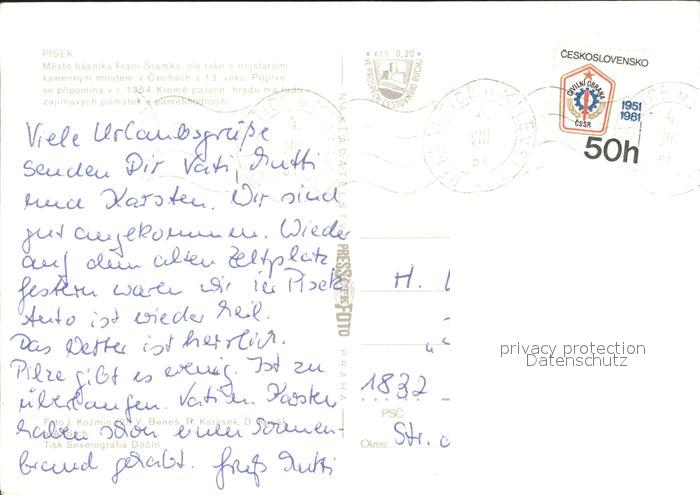 PÍSEK
Město básníka Fráni Šrámka, ale také s nejstarším
kamenným mostem v Čechách z 13. věku. Poprvé
se připomíná v r. 1254. Kromě paláce hradu má řadu
zajímavých památek a pamětihodností.
Viele Urlaubsgrüße
senden Dir Vati, Mutti
und Karsten. Wir sind
gut angekommen. Wieder
auf dem alten Zeltplatz
gestern waren wir in Pisek
Auto ist wieder heil.
Das Wetter ist herrlich.
Pilze gibt es wenig. Ist zu
überlaufen. Vati u. Karsten
haben schon einen Sonnen-
brand gehabt. Gruß Mutti
Foto J. Kožmín, V. Beneš, R. Karásek, D.
Tisk Severografia Děčín
KČS 0,20
VE PROSPĚCH CESTOVNÍHO RUCHU
PRESSFOTO
PRAHA
ČESKOSLOVENSKO
CIVILNÍ OBRANA
ČSSR
1951
1981
50h
H.
1832
PSČ
Okres:
Str.
privacy protection
Datenschutz